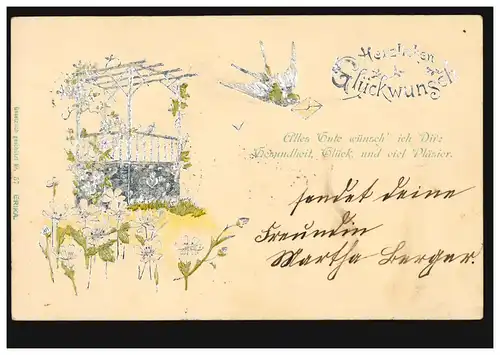 Herzlichen
Glückwunsch
Alles Gute wünsch' ich Dir:
Gesundheit, Glück und viel Pläsier.
sendet deine
Freundin
Martha Berger.